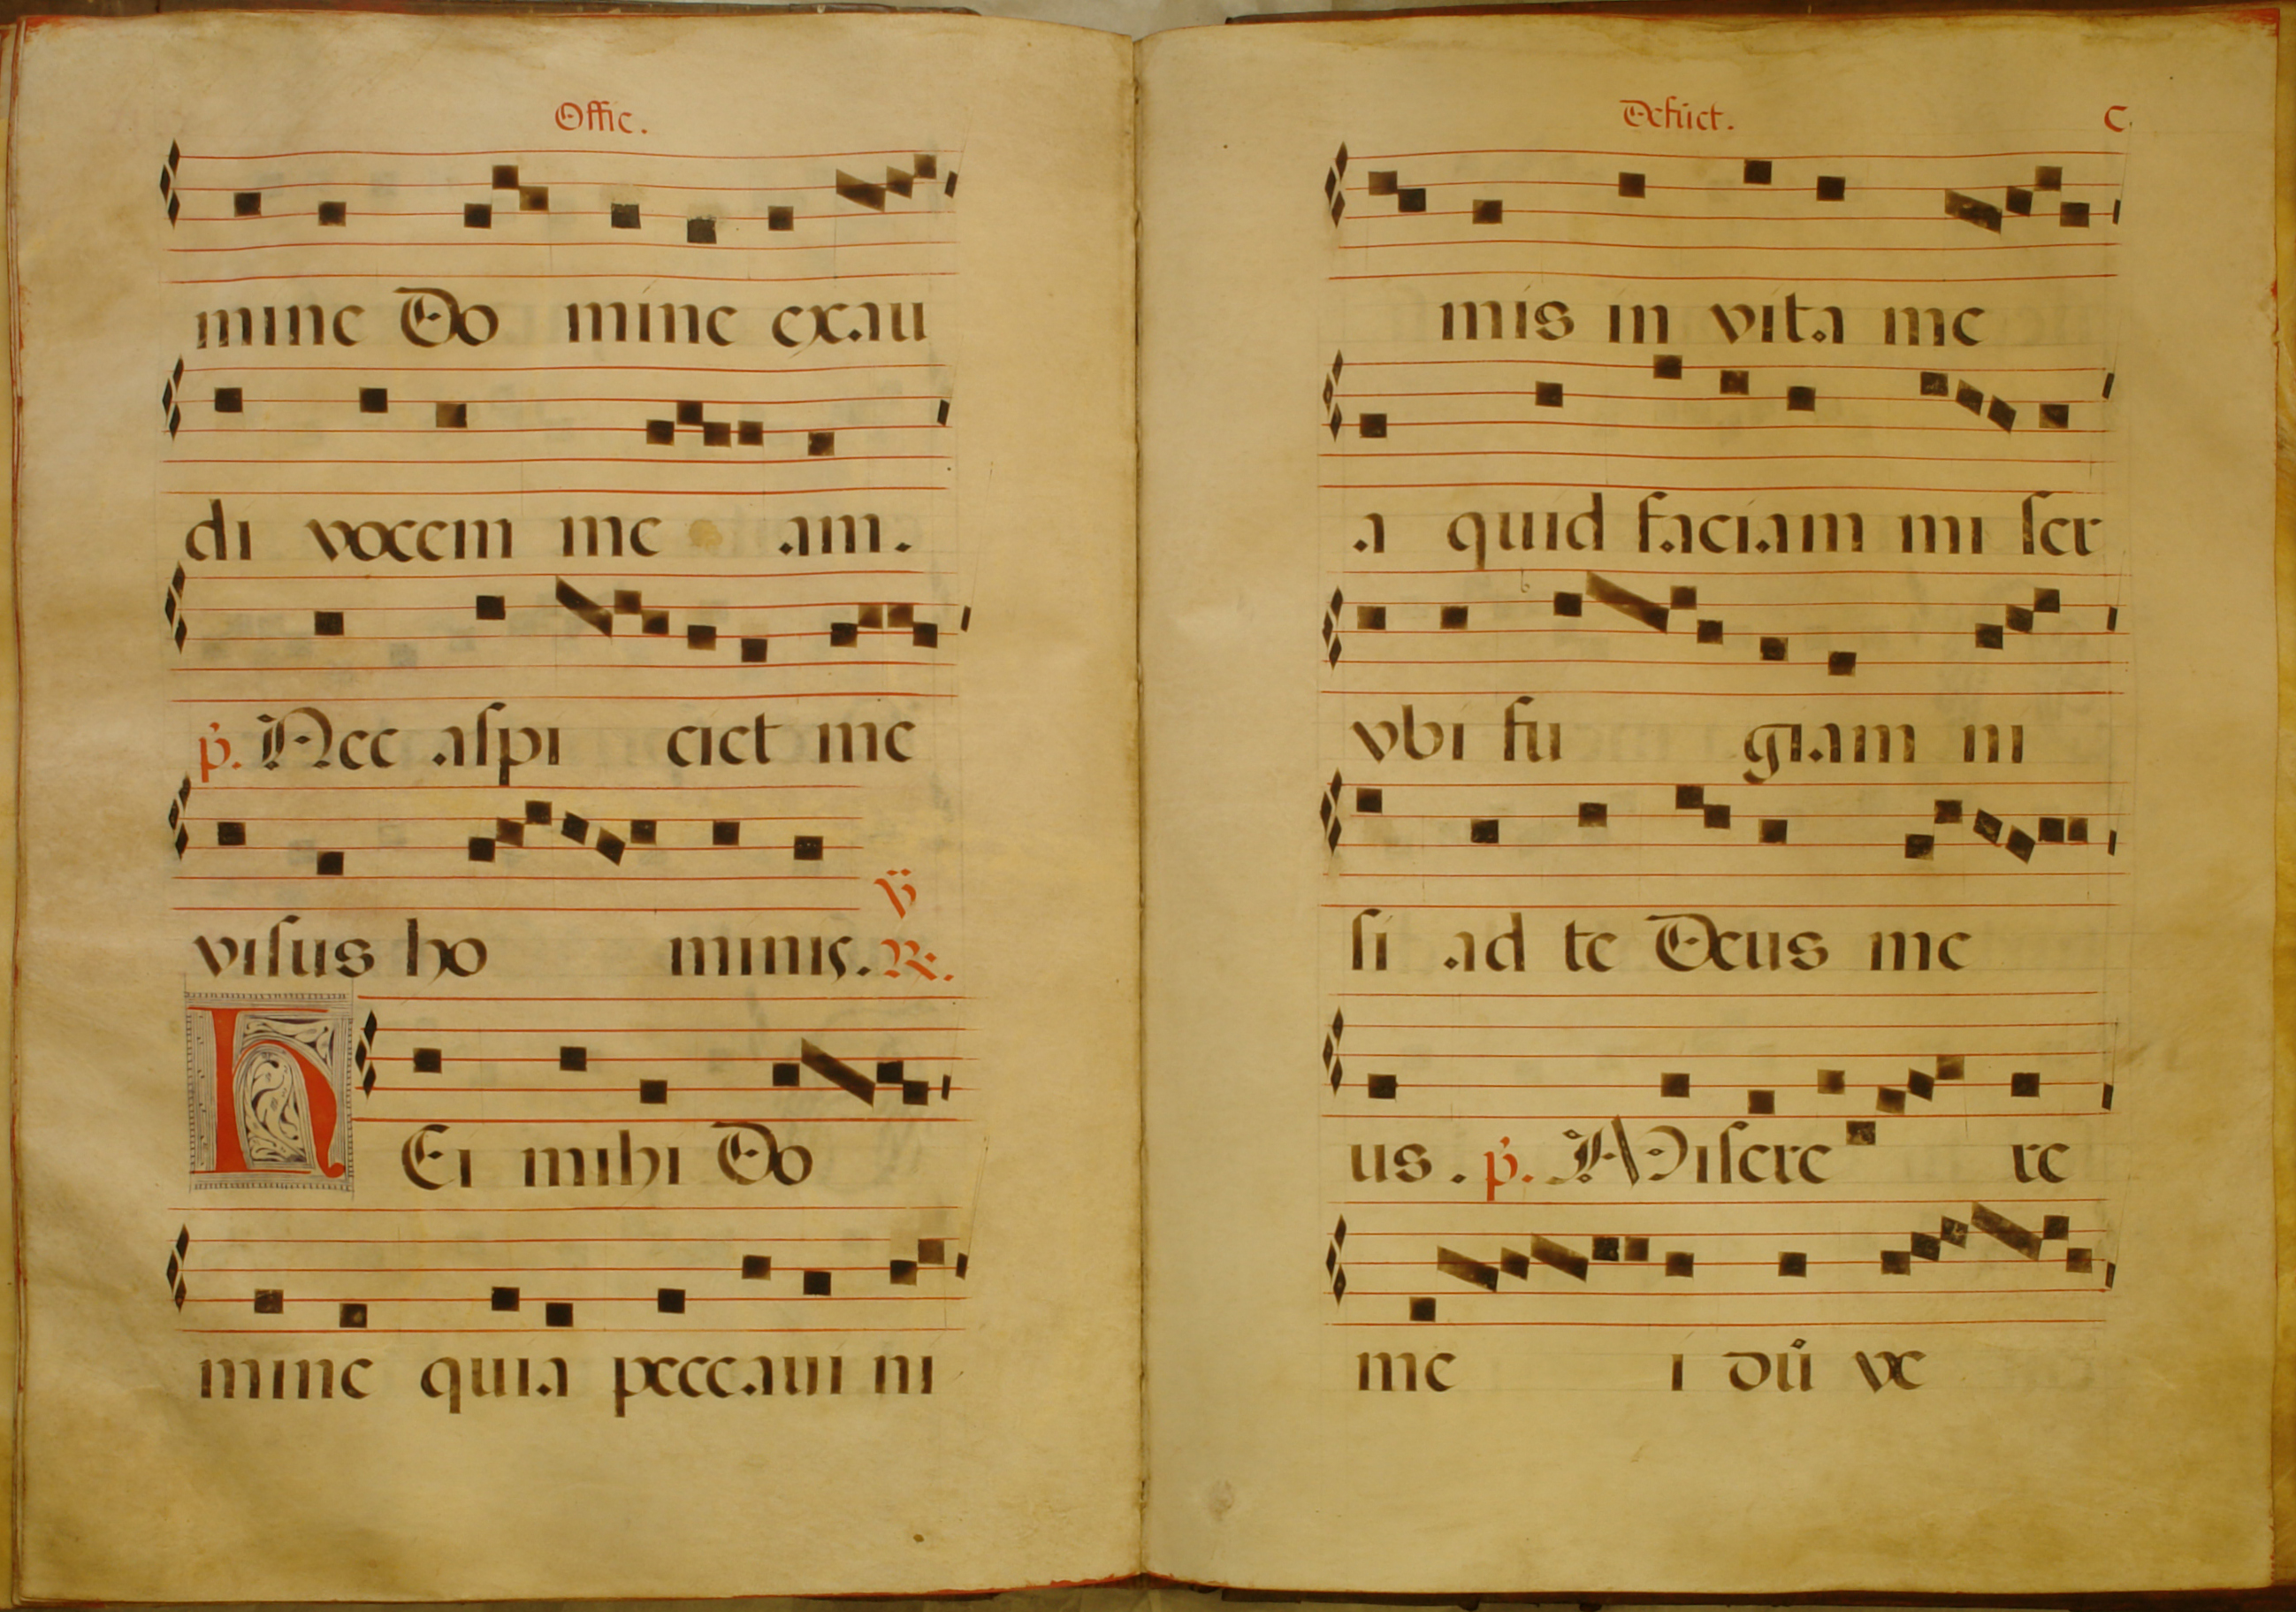 Offic.
mine Do mine exau
di vocem me am.
p. Nec aſpi ciet me
viſus ho minis. R.
hEi mihi Do
mine quia peccaui ni
Defūct. C
mis in vita me
a quid faciam mi ſer
vbi fu giam ni
ſi ad te Deus me
us. p. Miſere re
me i dū ve